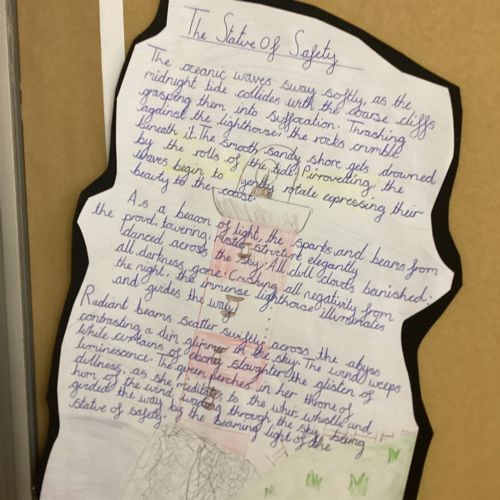 The Statue Of Safety
The oceanic waves sway softly, as the
midnight tide collides with the coarse cliffs
grasping them into suffocation. Thrashing
against the lighthouse, the rocks crumble
beneath it. The smooth sandy shore gets drowned
by the rolls of the tide. Pirrovetting, the
waves begin to gently rotate expressing their
beauty to the coast.
As a beacon of light, the sparks and beams from
the proud, towering, rustic structure elegantly
danced across the sky. All dull clouds banished;
all darkness gone. Crushing all negativity from
the night, the immense lighthouse illuminates
and guides the way.
Radiant beams scatter swiftly across the abyss
contrasting a dim glimmer in the sky. The wind weeps
while curtains of ebony slaughter the glisten of
luminescence. The queen perches in her throne of
dullness, as she meditates to the whir, whistle and
hum of the wind, wading through the sky being
guided the way by the beaming light of the
statue of safety.